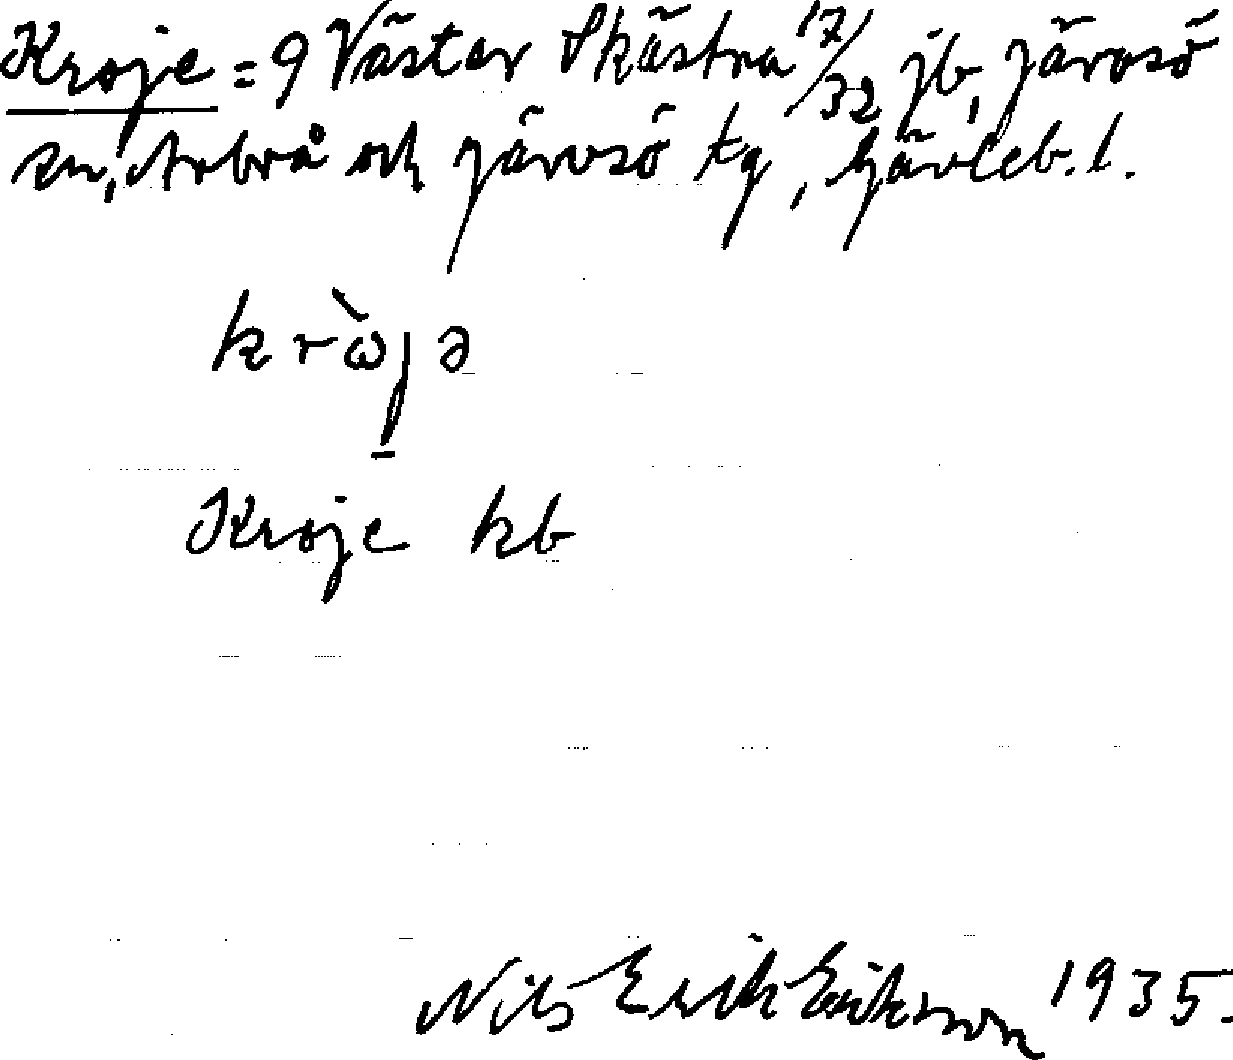 Kroje = 9 Väster Skästra 17/32 jb, Järvsö
sn, Arbrå och Järvsö tg, Gävleb. l.
krὼjə
Kroje kb
Nils Erik Eriksson 1935.